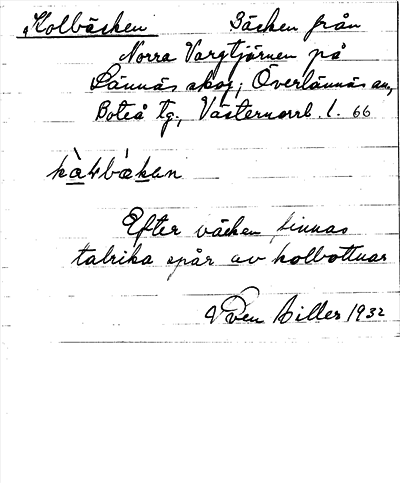 Kolbäcken Bäcken från
Norra Vargtjärnen på
Lännäs skog, Överlännäs sn,
Boteå tg., Västernorrl. l. 66
kàɫbákan
Efter bäcken finnas
talrika spår av kolbottnar
Sven Hiller 1932